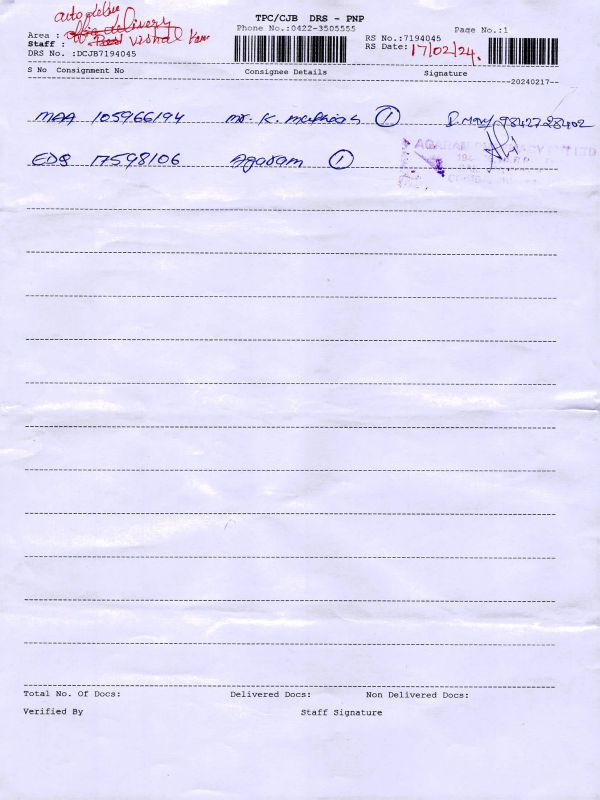 auto
delivery
TPC/CJB DRS - PNP
Phone No.:0422-3505555
Page No.:1
Area :
RS No.:7194045
Staff :
RS Date: 17/02/24.
DRS No. :DCJB7194045
S No Consignment No Consignee Details Signature
20240217
MAA 105966194 Mr. K. 1 P. Mary 9842728402
EDS 17598106 Agaram 1
AGARAM LTD
Total No. Of Docs: Delivered Docs: Non Delivered Docs:
Verified By Staff Signature